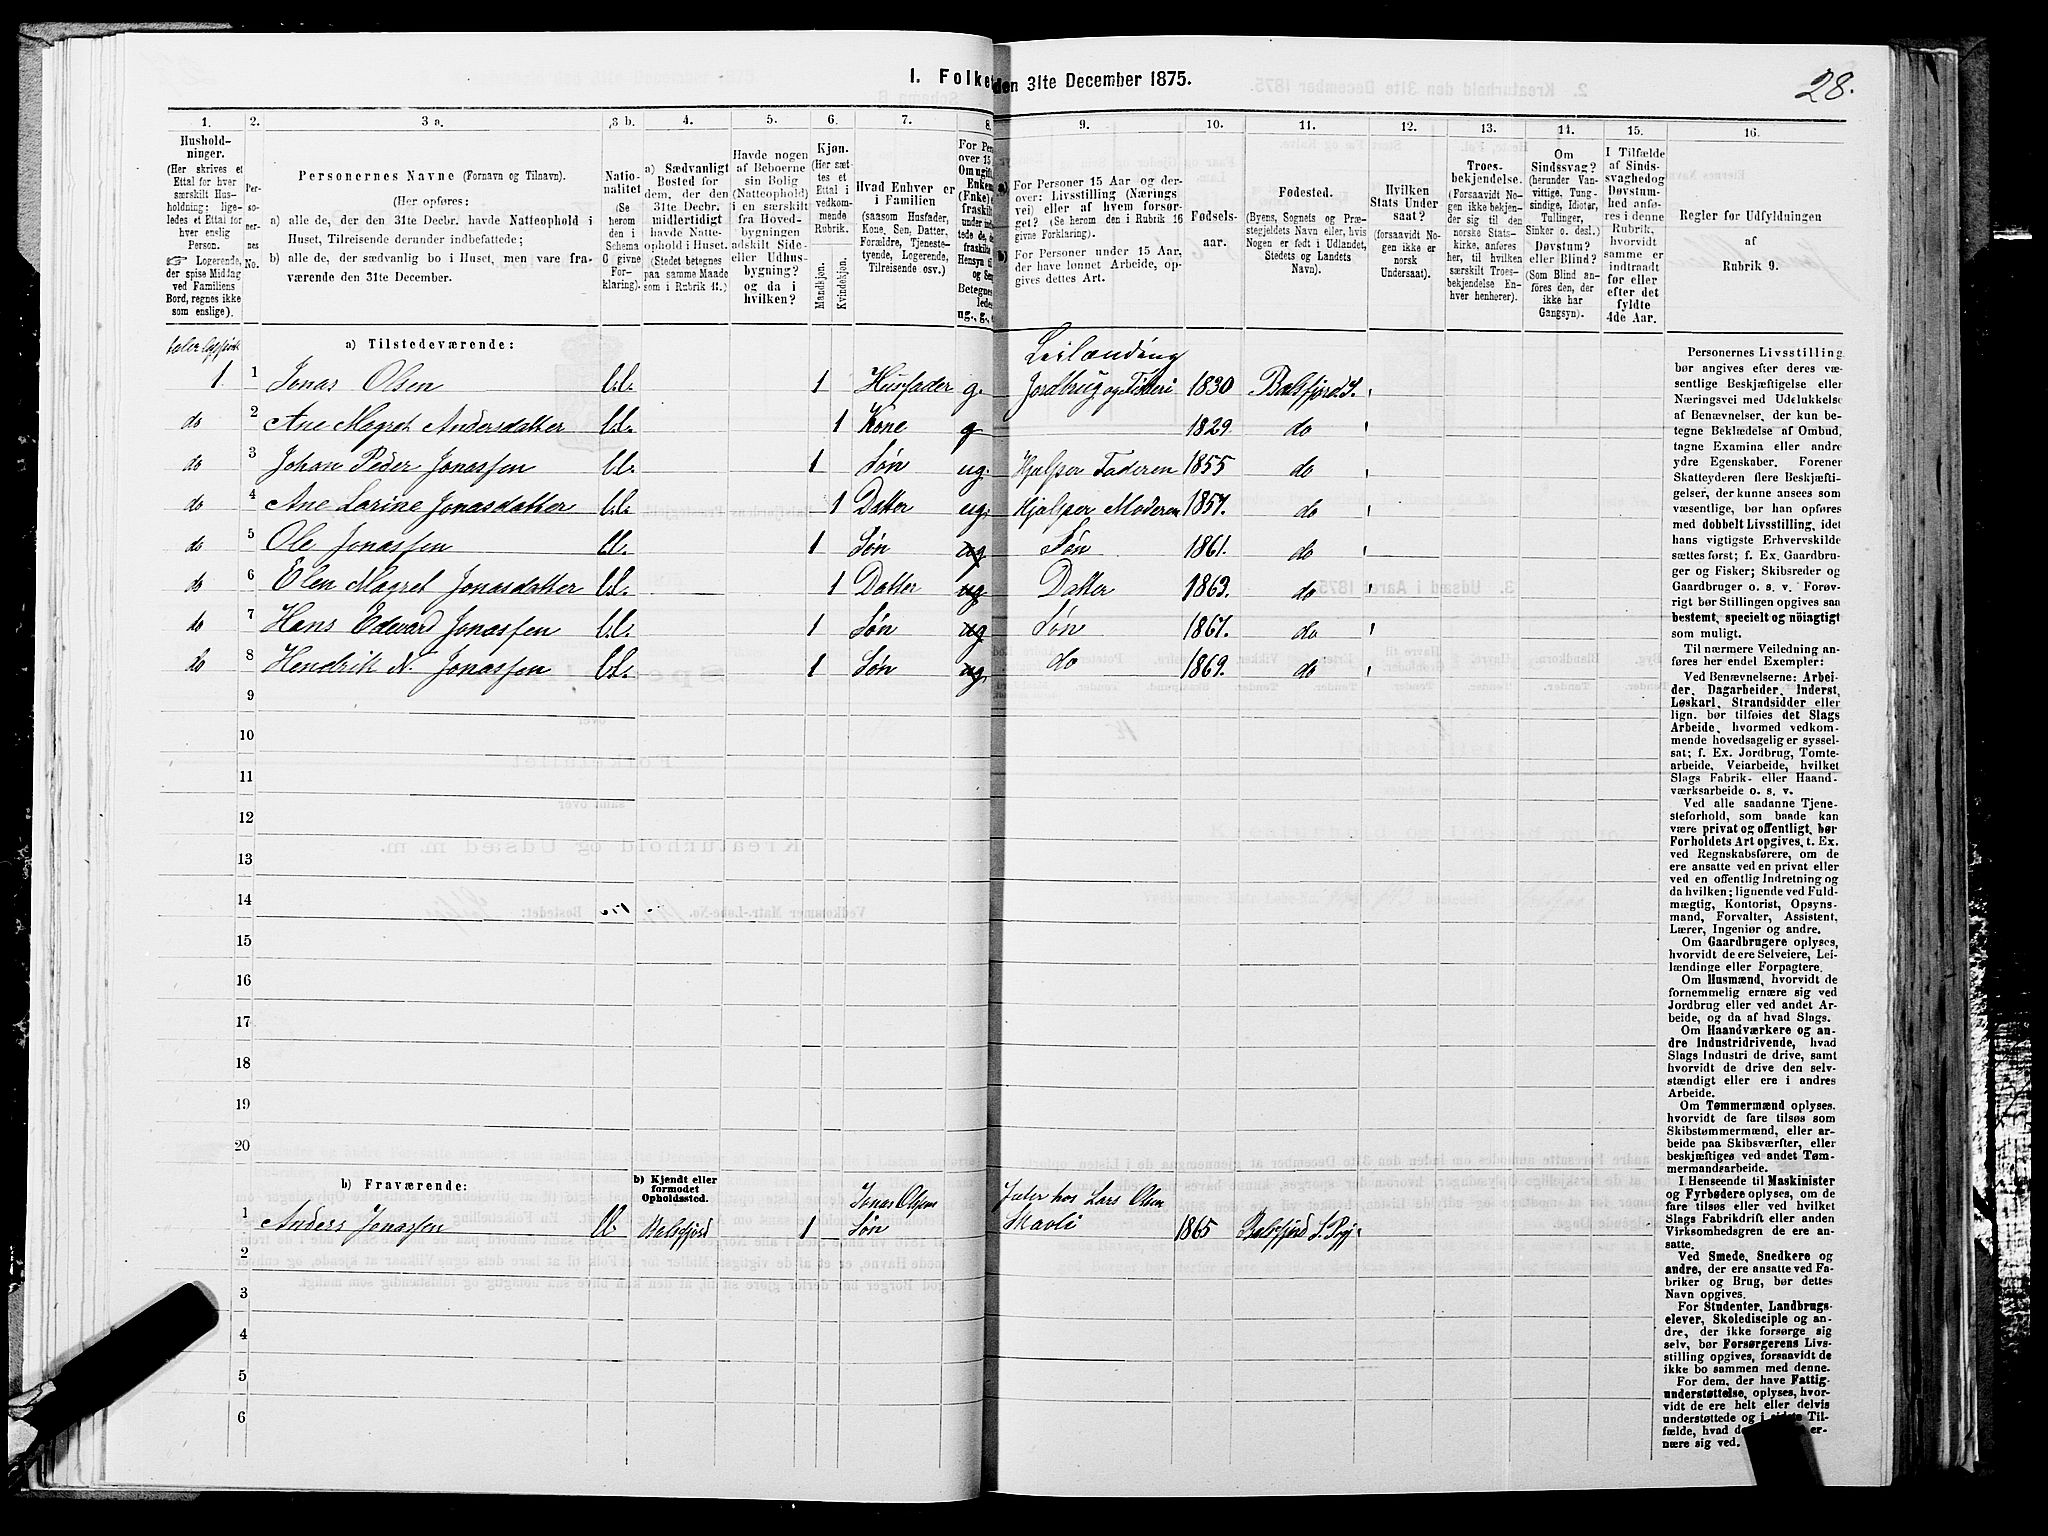 28.
I. Folke
den 31te December 1875.
1. 2. 3 a. 3 b. 4. 5. 6. 7. 8. 9. 10. 11. 12. 13. 14. 15. 16.
Hushold-
ninger.
(Her skrives et
Ettal for hver
særskilt Hus-
holdning: lige-
ledes et Ettal for
hver enslig
Person.
☞ Logerende,
der spise Middag
ved Familiens
Bord, regnes ikke
som enslige).
Per-
so-
ner-
nes
No.
Personernes Navne (Fornavn og Tilnavn).
(Her opføres:
a) alle de, der den 31te Decbr. havde Natteophold i
Huset, Tilreisende derunder indbefattede;
b) alle de, der sædvanlig bo i Huset, men vare fra-
værende den 31te December.
Natio-
nalitet
(Se
herom
den i
Schema
6 givne
For-
klaring).
a) Sædvanligt
Bosted for
dem, der den
31te Decbr.
midlertidigt
havde Natte-
ophold i Huset.
(Stedet betegnes
paa samme Maade
som i Rubrik 11.)
Havde nogen
af Beboerne
sin Bolig
(Natteophold)
i en særskilt
fra Hoved-
bygningen
adskilt Side-
eller Udhus-
bygning?
og da i
hvilken?
Kjøn.
(Her sæt-
tes et
Ettal i
vedkom-
mende
Rubrik.
Mandkjøn.
Kvindekjøn.
Hvad Enhver er
i Familien
(saasom Husfader,
Kone, Søn, Datter,
Forældre, Tjeneste-
tyende, Logerende,
Tilreisende osv.)
For Pers
over 15
Om ugift
Enkem
(Enke)
fraskilt
under ind
tede de,
fraskilte
Hensyn til
og Sen
Betegnes
ledes
ug., g.,
a) For Personer 15 Aar og der-
over: Livsstilling (Nærings-
vei) eller af hvem forsør-
get? (Se herom den i Rubrik 16
givne Forklaring).
b) For Personer under 15 Aar,
der have lønnet Arbeide, op-
gives dettes Art.
Fødsels-
aar.
Fødested.
(Byens, Sognets og Præ-
stegjeldets Navn eller, hvis
Nogen er født i Udlandet,
Stedets og Landets
Navn).
Hvilken
Stats Under
saat?
(forsaavidt No-
gen ikke er
norsk
Undersaat).
Troes-
bekjendelse.
(Forsaavidt No-
gen ikke bekjen-
der sig til den
norske Stats-
kirke, anføres
her, til hvilken
særskilt Troes-
bekjendelse En-
hver henhører).
Om
Sindssvag?
(herunder Van-
vittige, Tung-
sindige, Idioter,
Tullinger,
Sinker o. desl.)
Døvstum?
eller Blind?
(Som Blind an-
føres den, der
ikke har
Gangsyn).
I Tilfælde
af Sinds-
svaghed og
Døvstum-
hed anfø-
res i denne
Rubrik,
hvorvidt
samme er
indtraadt
før eller
efter det
fyldte
4de Aar.
Regler for Udfyldningen
af
Rubrik 9.
a) Tilstedeværende:
Leilænding
1. 1 Jonas Olsen 1 Husfader g. Jordbrug og Fiskeri 1830 Balsfjord S.
do 2 Ane Magret Andersdatter 1 Kone g 1829 do
do 3 Johan Peder Jonassen 1 Søn ug. Hjælper Faderen 1855 do
do 4 Ane Larine Jonasdatter 1 Datter ug. Hjælper Moderen 1857. do
do 5 Ole Jonassen 1 Søn ug Søn 1861. do
do 6 Elen Magret Jonasdatter 1 Datter ug Datter 1863. do
do 7 Hans Edevard Jonassen 1 Søn ug Søn 1867. do
do 8 Hendrik N. Jonassen 1 Søn ug do 1869. do
9
10
11
12
13
14
15
16
17
18
19
20
b) Fraværende:
b) Kjendt eller
formodet
Opholdssted.
Jonas Olsens
hos Lars Olsen
1 Anders Jonassen Balsfjord 1 Søn 1865 Balsfjord S.
2
3
4
5
6
Personernes Livsstilling
bør angives efter deres væ-
sentlige Beskjæftigelse eller
Næringsvei med Udelukkelse
af Benævnelser, der kun be-
tegne Beklædelse af Ombud,
tagne Examina eller andre
ydre Egenskaber. Forener
Skatteyderen flere Beskjæfti-
gelser, der kunne ansees som
væsentlige, bør han opføres
med dobbelt Livsstilling, idet
hans vigtigste Erhvervskilde
sættes først; f. Ex. Gaardbru-
ger og Fisker; Skibsreder og
Gaardbruger o. s. v. Forøv-
rigt bør Stillingen opgives saa
bestemt, specielt og nöiagtigt
som muligt.
Til nærmere Veiledning an-
føres her endel Exempler:
Ved Benævnelserne: Arbei-
der, Dagarbeider, Inderst,
Løskarl, Strandsidder eller
lign. bør tilføies det Slags
Arbeide, hvormed vedkom-
mende hovedsagelig er syssel-
sat; f. Ex. Jordbrug, Tomte-
arbeide, Veiarbeide, hvilket
Slags Fabrik- eller Haand-
værksarbeide o. s. v.
Ved alle saadanne Tjene-
steforhold, som baade kan
være privat og offentligt, bør
Forholdets Art opgives, t. Ex.
ved Regnskabsførere, om de
ere ansatte ved en privat eller
ved en offentlig Indretning og
da hvilken; lignende ved Fuld-
mægtig, Kontorist, Opsyns-
mand, Forvalter, Assistent,
Lærer, Ingeniør og andre.
Om Gaardbrugere oplyses,
hvorvidt de ere Selveiere, Lei-
lændinge eller Forpagtere.
Om Husmænd, hvorvidt de
fornemmelig ernære sig ved
Jordbrug eller ved andet Ar-
beide, og da af hvad Slags.
Om Haandværkere og an-
dre Industridrivende, hvad
Slags Industri de drive, samt
hvorvidt de drive den selv-
stændigt eller ere i andres
Arbeide.
Om Tømmermænd oplyses,
hvorvidt de fare tilsøs som
Skibstømmermænd, eller ar-
beide paa Skibsværfter, eller
beskjæftiges ved andet Tøm-
mermandsarbeide.
I Henseende til Maskinister
og Fyrbødere oplyses, om de
fare tilsøs eller ved hvilket
Slags Fabrikdrift eller anden
Virksomhedsgren de ere an-
satte.
Ved Smede, Snedkere og
andre, der ere ansatte ved Fa-
briker og Brug, bør dettes
Navn opgives.
For Studenter, Landbrugs-
elever, Skoledisciple og an-
dre, der ikke forsørge sig
selv, bør Forsørgerens Livs-
stilling opgives, forsaavidt de
ikke bo sammen med denne.
For dem, der have Fattig-
understøttelse, oplyses, hvor-
vidt de ere helt eller delvis
understøttede og i sidste Til-
fælde, hvad de
nære sig ved.